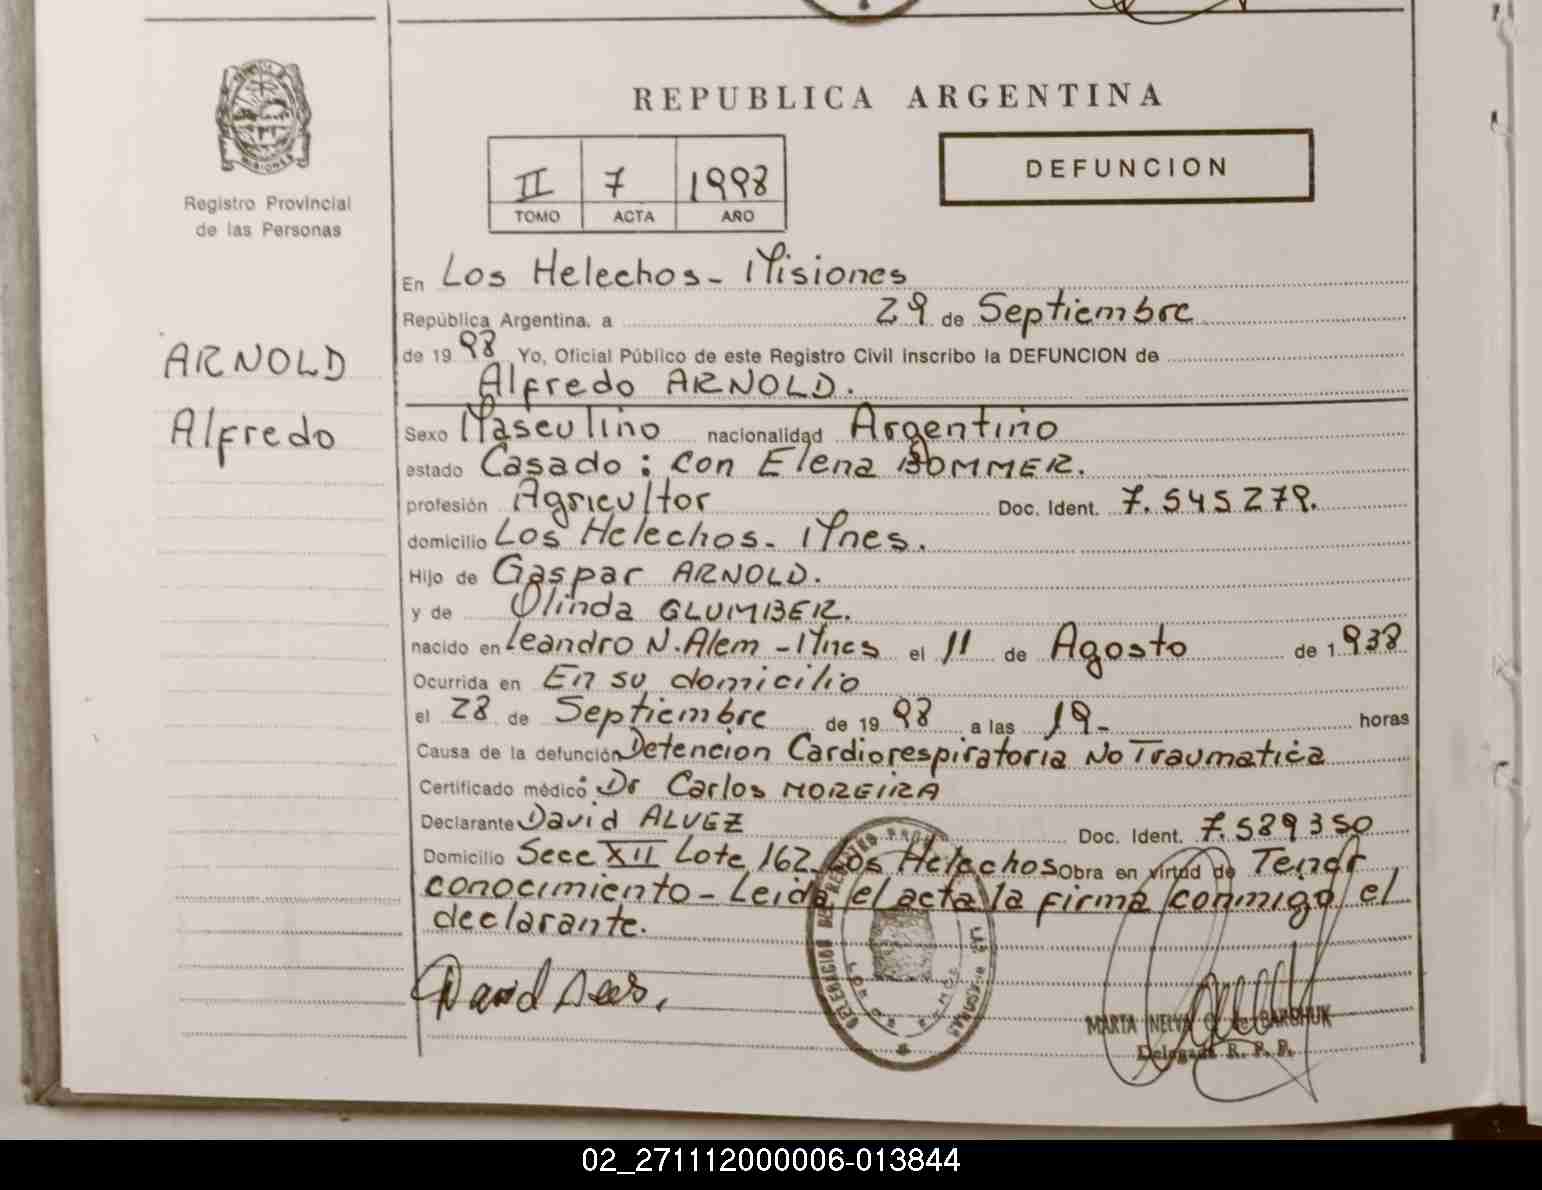 REPUBLICA ARGENTINA
MISIONES
Registro Provincial
de las Personas
II 7 1998
TOMO ACTA AÑO
DEFUNCION
ARNOLD
Alfredo
En Los Helechos - Misiones
República Argentina, a 29 de Septiembre
de 19 98 Yo, Oficial Público de este Registro Civil inscribo la DEFUNCION de
Alfredo ARNOLD.
Sexo Masculino nacionalidad Argentino
estado Casado: con Elena BOMMER.
profesión Agricultor Doc. Ident. 7.545279.
domicilio Los Helechos - Mnes.
Hijo de Gaspar ARNOLD.
y de Olinda GLUMBER.
nacido en Leandro N. Alem - Mnes el 11 de Agosto de 1.938
Ocurrida en En su domicilio
el 28 de Septiembre de 19 98 a las 19- horas
Causa de la defunción Detencion Cardiorespiratoria No Traumatica
Certificado médico: Dr Carlos MOREIRA
Declarante David ALVEZ Doc. Ident. 7.589350
Domicilio Secc XII Lote 162 Los Helechos Obra en virtud de Tener
conocimiento - Leida el acta la firma conmigo el
declarante.
David
MARTA NELVA de BARCHUK
Delegada R. P. P.
02_271112000006-013844